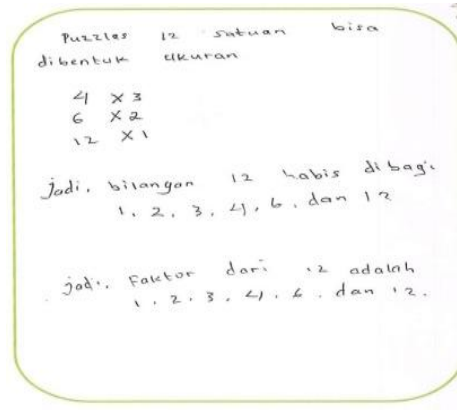 Puzzles 12 satuan bisa
dibentuk ukuran
4 x 3
6 x 2
12 x 1
jadi, bilangan 12 habis dibagi
1, 2, 3, 4, 6, dan 12
jadi, Faktor dari 12 adalah
1, 2, 3, 4, 6, dan 12.